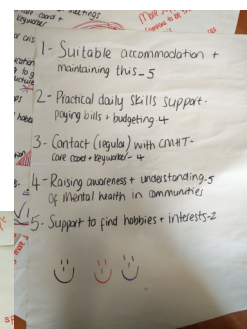 meetings
care coord +
keyworker
More s
1 - Suitable accommodation +
maintaining this - 5
2 - Practical daily skills support -
paying bills + budgeting 4
3 - Contact (regular) with CMHT -
care coord + keyworker - 4
4 - Raising awareness + understanding. 5
of Mental health in communities
5 - Support to find hobbies + interests - 2